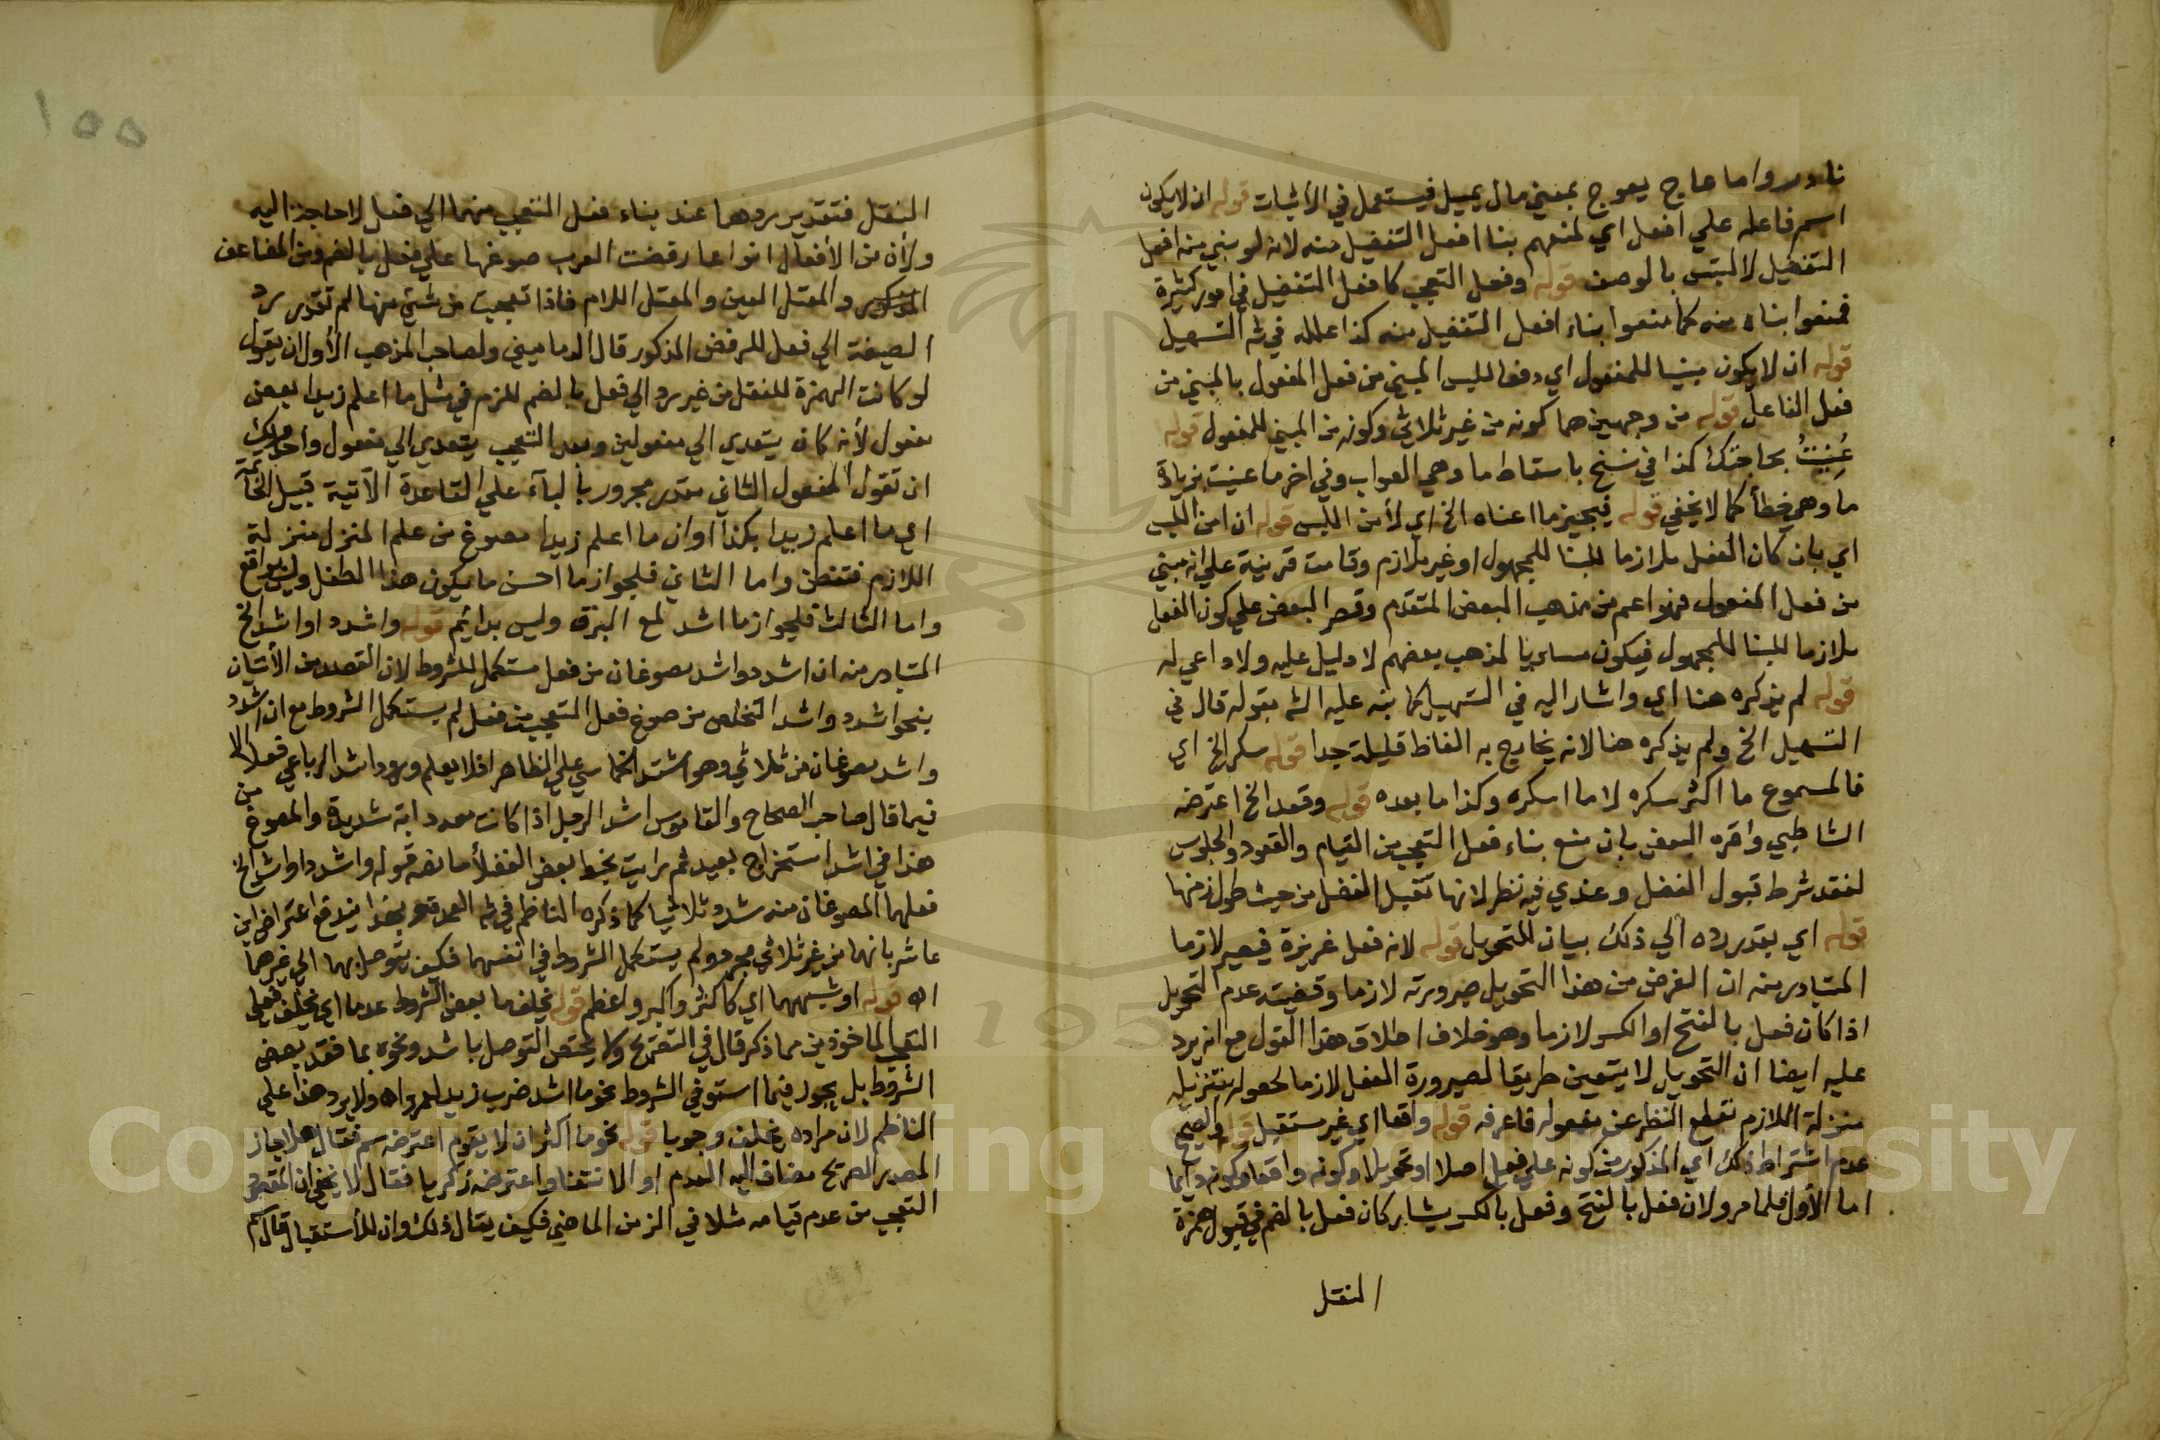 نادر واما عاج يعوج بمعني مال يميل فيستعمل في الأثبات قوله ان لا يكون
اسم فاعله علي افعل اي لمنعهم بنا افعل التفضيل منه لانه لو بني منه افعل
التفضيل لالتبس بالوصف قوله وفعل التعجب كافعل التفضيل في امور كثيرة
فمنعوا بناه منه كما منعوا بناء افعل التفضيل منه كذا علله في شرح التسهيل
قوله ان لا يكون مبنيا للمفعول اي دفعا للبس المبني من فعل المفعول بالمبني من
فعل الفاعل قوله من وجهين هما كونه من غير ثلاثي وكونه من المبني للمفعول قوله
عُنِيْتُ بحاجتك كذا في نسخ باسقاط ما وهي الصواب وفي اخر ما عنيت بزيادة
ما وهي خطأ كما لا يخفي قوله فيجيز ما اعناه الخ اي لأمن اللبس قوله ان امن اللبس
اي بان كان الفعل ملازما للبنا للمجهول او غير ملازم وقامت قرينة علي انه مبني
من فعل المفعول فهو اعم من مذهب البعض المتقدم وقصر البعض علي كون الفعل
ملازما للبنا للمجهول فيكون مساويا لمذهب بعضهم لا دليل عليه ولا داعي له
قوله لم يذكره هنا اي واشار اليه في التسهيل كما نبه عليه الش بقوله قال في
التسهيل الخ ولم يذكره هنا لانه يخارج به الفاظ قليلة جدا قوله سكر الخ اي
فالمسموع ما اكثر سكره لا ما اسكره وكذا ما بعده قوله وقعد الخ اعترضه
الشاطبي واقره البعض بان منع بناء فعل التعجب من القيام والقعود والجلوس
لفقد شرط قبول الفضل وعندي فيه نظر لانها تقبل الفضل من حيث طول زمنها
قوله اي يقدر رده الي ذلك بيان للتحويل قوله لانه فعل غريزة فيصير لازما
المتبادر منه ان الغرض من هذا التحويل صيرورته لازما وقضيته عدم التحويل
اذا كان فعل بالفتح او الكسر لازما وهو خلاف اطلاق هذا القول مع انه يرد
عليه ايضا ان التحويل لا يتعين طريقا لصيرورة الفعل لازما لحصوله بتنزيله
منزلة اللازم بقطع النظر عن مفعوله فاعرفه قوله واقعا اي غير مستقبل قوله والصحيح
عدم اشتراط ذلك اي المذكور من كونه علي فعل اصلا او تحويلا وكونه واقعا وكونه دايما
اما الأول فلما مر ولان فعل بالفتح وفعل بالكسر يشاركان فعل بالضم في قبول همزة
النقل
١٥٥
النقل فتقدير ردهما عند بناء فعل التعجب منهما الي فعل لا حاجة اليه
ولأن من الأفعال انواعا رفضت العرب صوغها علي فعل بالضم ومن المضاعف
والمعتل العين والمعتل اللام فاذا تعجبت من شيء منها لم تقدر رد
الصيغة الي فعل للرفض المذكور قال الدماميني ولصاحب المذهب الأول ان يقول
لو كانت الهمزة للنقل من غير رد الي فعل بالضم للزم في مثل ما اعلم زيدا بعض
مفعول لأنه كان يتعدي الي مفعولين وبعد التعجب يتعدي الي مفعول واحد ولك
ان تقول المفعول الثاني مقدر مجرور بالبآء علي القاعدة الآتية قبيل الخاتمة
اي ما اعلم زيدا بكذا او ان ما اعلم زيدا مصوغ من علم المنزل منزلة
اللازم فتفطن واما الثاني فلجواز ما احسن ما يكون هذا الطفل وليس بواقع
واما الثالث فلجواز ما اشد لمع البرق وليس بدائم قوله واشدد او اشد الخ
المتبادر منه ان اشدد واشد مصوغان من فعل مستكمل للشروط لان القصد من الأتيان
بنحو اشدد واشد التخلص من صوغ فعل التعجب من فعل لم يستكمل الشروط مع ان اشدد
واشد مصوغان من ثلاثي وهو اشتد الخماسي علي الظاهر اذ لا يعلم ورود اشد الرباعي فعلا الا
فيما قال صاحب الصحاح والقاموس اشد الرجل اذا كانت معه دابة شديدة والمصوغ من
هذا في اشد استخراج بعيد ثم رايت بخط بعض الفضلأ ما نصه قوله واشدد او اشد الخ
فعلهما المصوغان منه شدد ثلاثيا كما ذكره الناظم في شرح العمدة وبهذا يندفع اعتراض ابن
عاشر بانهما من غير ثلاثي مجرد ولم يستكمل الشروط في انفسهما فكيف يتوصل بهما الي غيرهما
اه قوله او شبههما اي كاكثر واكبر واعظم قوله يخلف ما بعض الشروط عدما اي يخلف فعلي
التعجب الماخوذين مما ذكر قال في التصريح ولا يختص التوصل باشد ونحوه بما فقد بعض
الشروط بل يجوز فيما استوفي الشروط نحو ما اشد ضرب زيد لعمرو اه ولا يرد هذا علي
الناظم لان مراده يخلف وجوبا قوله نحو ما اكثر ان لا يقوم اعترضه سم فقال هلا جاز
المصدر الصريح مضاف اليه العدم او الانتفا واعترضه زكريا فقال لا يخفي ان المقصود
التعجب من عدم قيامه مثلا في الزمن الماضي فكيف يقال ذلك وان للأستقبال قال سم